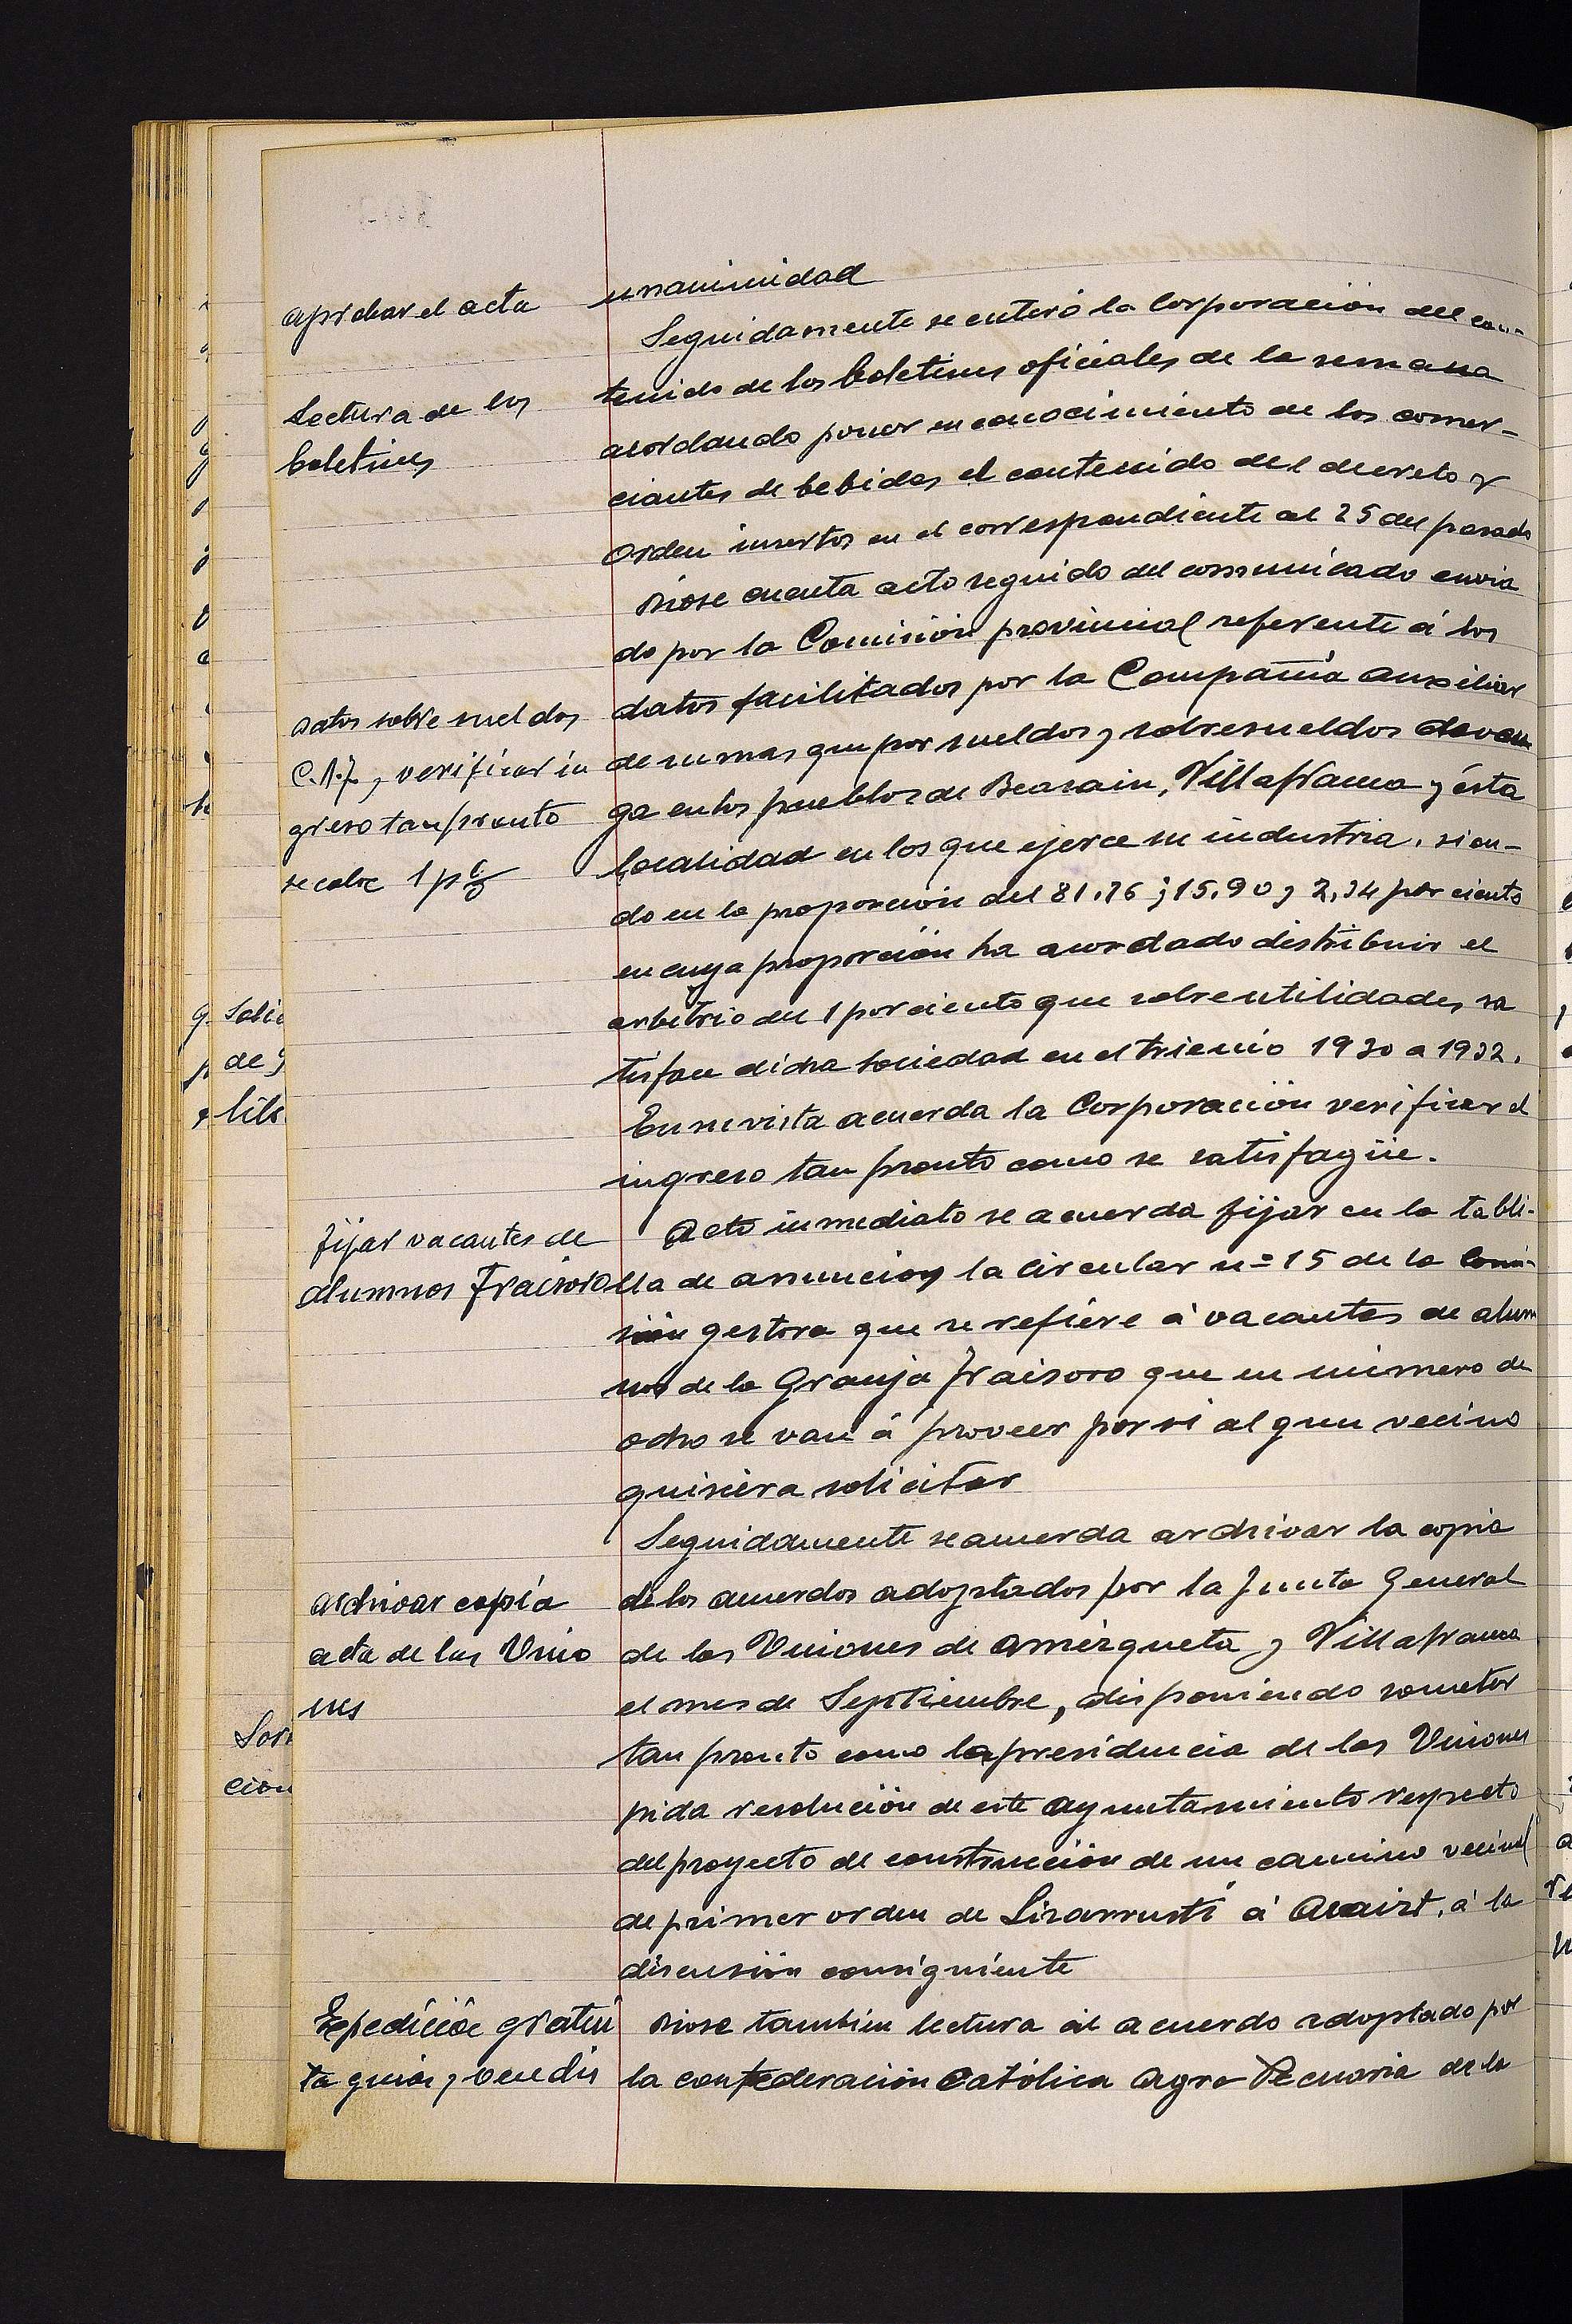 aprobar el acta
unanimidad
Seguidamente se enteró la Corporación del con-
Lectura de los
boletines
tenido de los boletines oficiales de la semana
acordando poner en conocimiento de los comer-
ciantes de bebidas el contenido del decreto y
Orden insertos en el correspondiente al 25 del pasado
Diose cuenta acto seguido del comunicado envia
do por la Comisión provincial referente á los
Datos sobre sueldos
C.A.F. y verificar in
greso tan pronto
se cobre 1 p%
datos facilitados por la Compañia Auxiliar
de sumas que por sueldos y sobresueldos deven
ga en los pueblos de Beasain, Villafranca y ésta
localidad en los que ejerce su industria, sien-
do en la proporción del 81,76; 15,90 y 2,34 por ciento
en cuya proporción ha acordado distribuir el
arbitrio del 1 por ciento que sobre utilidades sa
tisface dicha Sociedad en el trienio 1930 a 1932.
En su vista acuerda la Corporación verificar el
ingreso tan pronto como se satisfagüe.
fijar vacantes de
alumnos Fraisoro
Acto inmediato se acuerda fijar en la tabli-
lla de anuncios la Circular nº 15 de la Comi-
sión gestora que se refiere á vacantes de alum
nos de la Granja Fraisoro que en número de
ocho se van á proveer por si algun vecino
quisiera solicitar
Seguidamente se acuerda archivar la copia
archivar copia
acta de las Unio
nes
de los acuerdos adoptados por la Junta General
de las Uniones de Amézqueta y Villafranca
el mes de Septiembre, disponiendo someter
tan pronto como la presidencia de las Uniones
pida resolución de este Ayuntamiento respecto
del proyecto de construcción de un camino vecinal
de primer orden de Lizarrusti á Ataun, á la
discusión consiguiente
Expedición gratui
ta guias y vendis
Diose tambien lectura al acuerdo adoptado por
la confederación Católica Agro Pecuaria de la